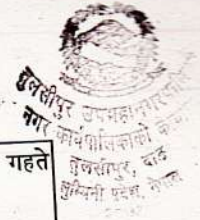 तुलसीपुर उपमहानगरपालिका
नगर कार्यपालिकाको कार्यालय
तुलसीपुर, दाङ
लुम्बिनी प्रदेश, नेपाल
गहते